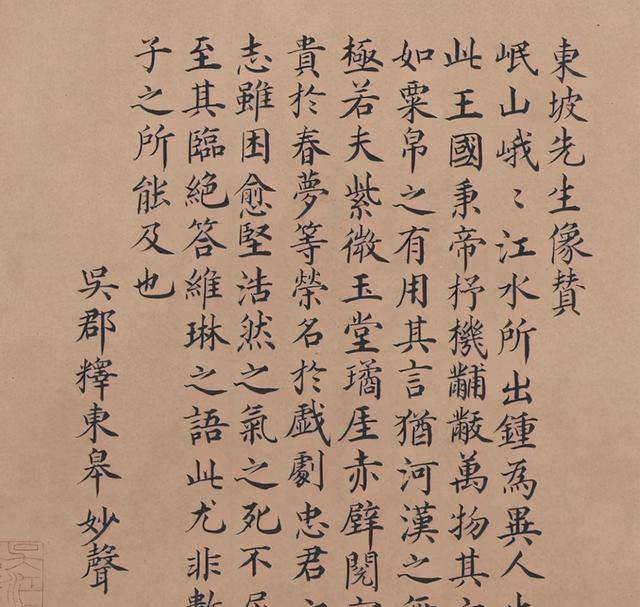 東坡先生像贊
岷山峨〻江水所出鍾為異人
此王國秉帝杼機黼黻萬物其
如粟帛之有用其言猶河漢之無
極若夫紫微玉堂璚厓赤壁閱
貴於春夢等榮名於戲劇忠君
志雖困愈堅浩然之氣之死不屈
至其臨絕答維琳之語此尤非數
子之所能及也
吳郡釋東皋妙聲